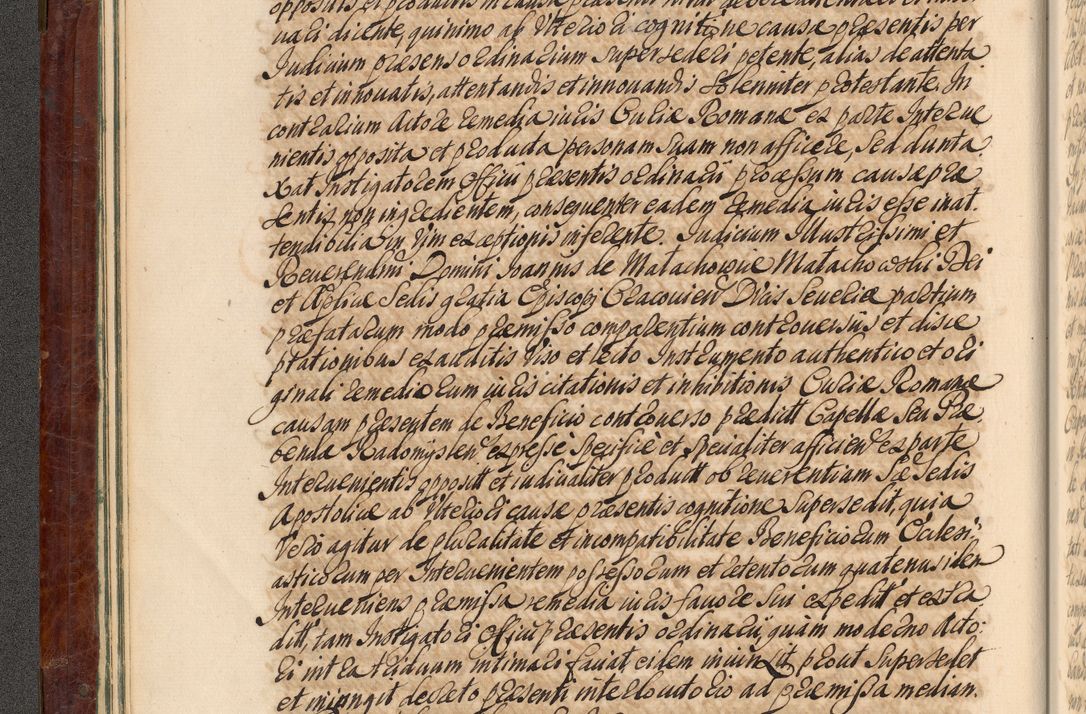 oppositis et productis in causa præsenti
ua ei dicente, quinimo ab Ulteriori cognitione causæ præsentis per
Iudicium præsens ordinarium supersederi petente, alias de attenta
tis et innovatis, attentandis et innovandis Solenniter protestante. In
contrarium Actore remedia iuris Curiæ Romanæ ex parte Interve
nientis opposita et producta personam suam non afficere, Sed dunta
xat Instigatorem Officii præsentis ordinarii processum causæ præ
sentis non ingredientem, consequenter eadem remedia iuris esse inat
tendibilia in Vim exceptionis inferente. Iudicium Illustrissimi et
Reverendmi Domini Joannis de Małachowice Małachowski Dei
et Aplicæ Sedis gratia Episcopi Cracovien Ducis Severiæ partium
præfatarum modo præmisso comparentium controversiis et disce
ptationibus exauditis Viso et lecto Instrumento authentico et ori
ginali remediorum iuris citationis et inhibitionis Curiæ Romanæ
causam præsentem de Beneficio controverso prædictt Capellæ Seu Præ
benda Radomyslen expresse specifice et specialiter afficien ex parte
Intervenientis opposit et iudicialiter produtt ob reverentiam Sæ Sedis
Apostolicæ ab Ulteriori causæ præsentis cognitione Supersedit, quia
Vero agitur de pluralitate et incompatibilitate Beneficiorum Ecclesi
asticorum per Intervenientem possessorum et retentorum quatenus iden
Interveniens præmissa remedia iuris favore Sui expeditt et extra
ditt, tam Instigatori Officii præsentis ordinarii, quam moderno Acto:
ri intra triduum intimari faciat eidem iniunxit prout Supersedet
et iniungit decreto præsenti interlocutorio ad præmissa median.